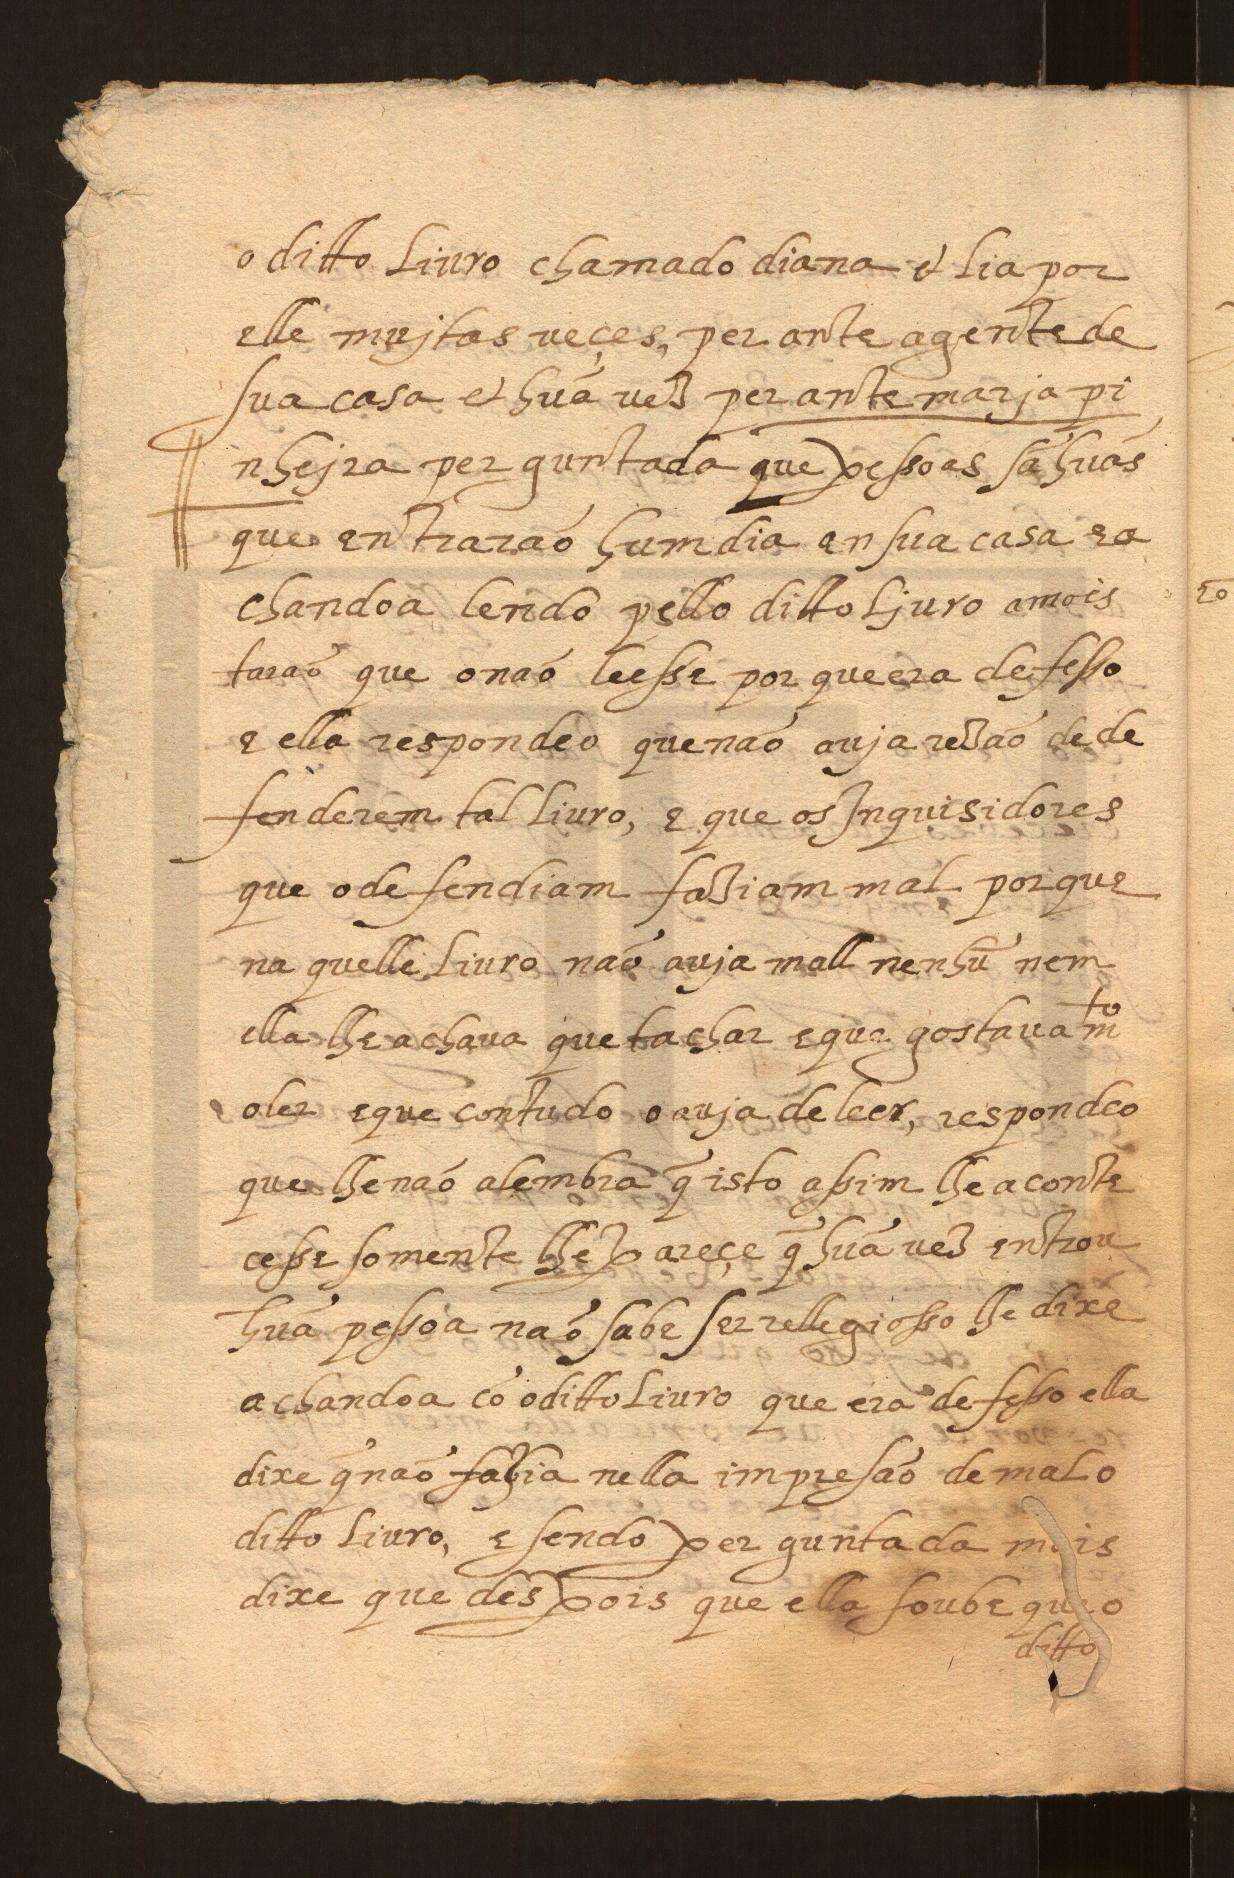 o ditto Liuro chamado diana et Lia por
elle mujtas ueçes, perante agente de
sua casa et huã uez perante marja pi
nhejra perguntada que pessoas sã huãs
que entrarão hum dia en sua casa ea
chandoa lendo pello ditto Ljuro amois
tarão que onão leesse porque era defesso
e ella respondeo que não auja rezão dede
fenderem tal liuro, e que os Inquisidores
que o defendiam faziam mal porque
na quelle Liuro não auja mall nenhũ nem
ella lhe achaua que tachar eque gostaua mto
oler eque contudo o auja deleer, respondeo
que lhe não alembra q̃ isto assim lhe aconte
cesse somente lhe pareçe q̃ huã uez entrou
huã pessoa não sabe ser rellegiosso lhe dixe
achandoa cõ oditto Liuro que era defesso ella
dixe q̃ não fazia nella impresão de mal o
ditto liuro, e sendo perguntada mais
dixe que despois que ella soube que o
ditto